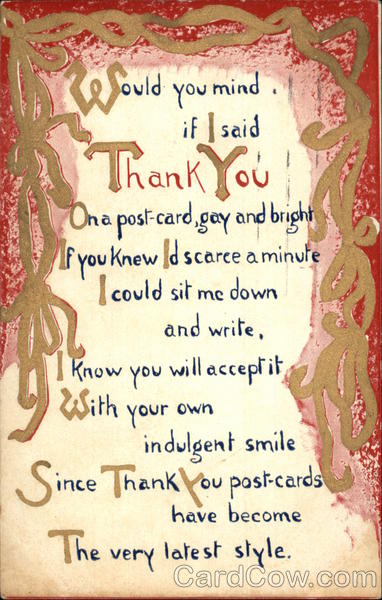 Would you mind.
if I said
Thank You
On a post-card, gay and bright
If you knew I'd scarce a minute
I could sit me down
and write,
I know you will accept it
With your own
indulgent smile
Since Thank You post-cards
have become
The very latest style.
CardCow.com